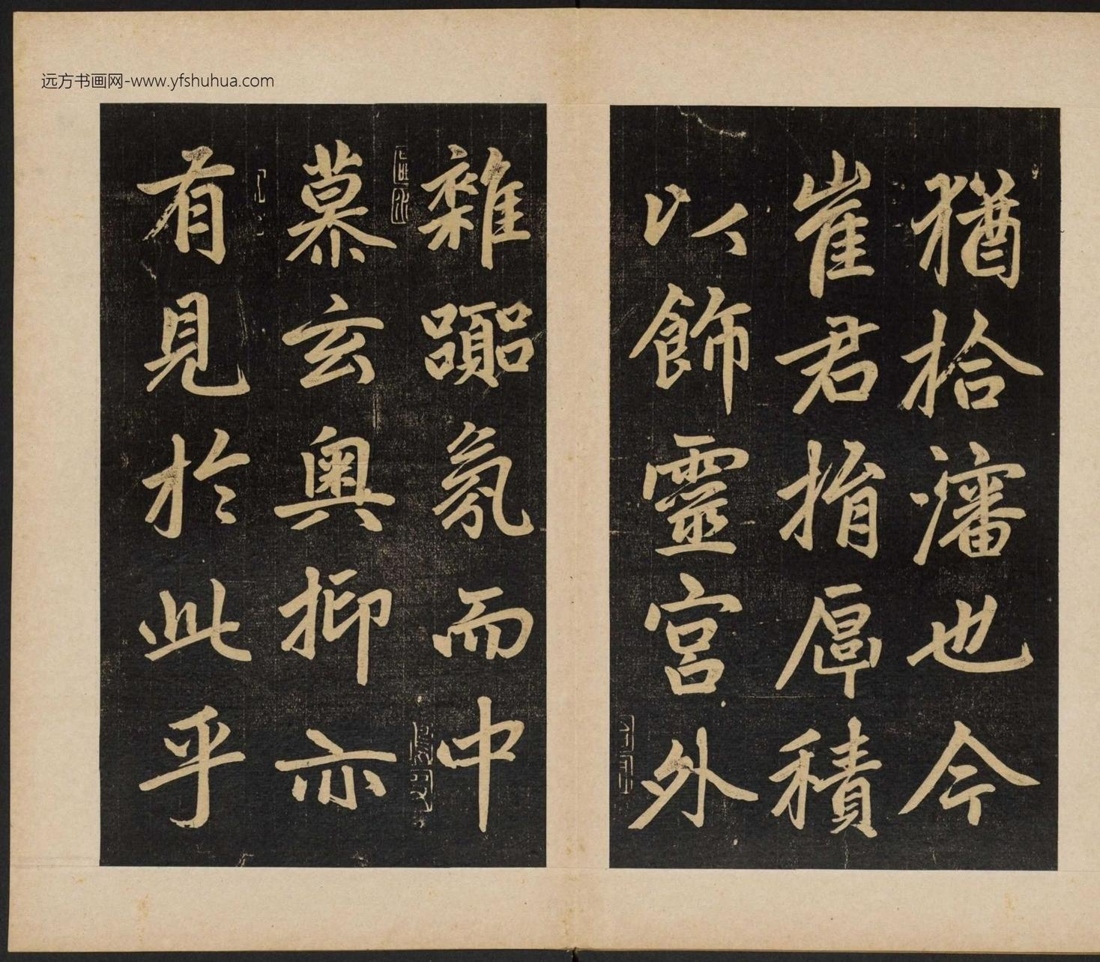 远方书画网-www.yfshuhua.com
猶拾瀋也今
崔君捐厚積
以飾靈宮外
雜嚻氛而中
慕玄奧抑亦
有見於此乎